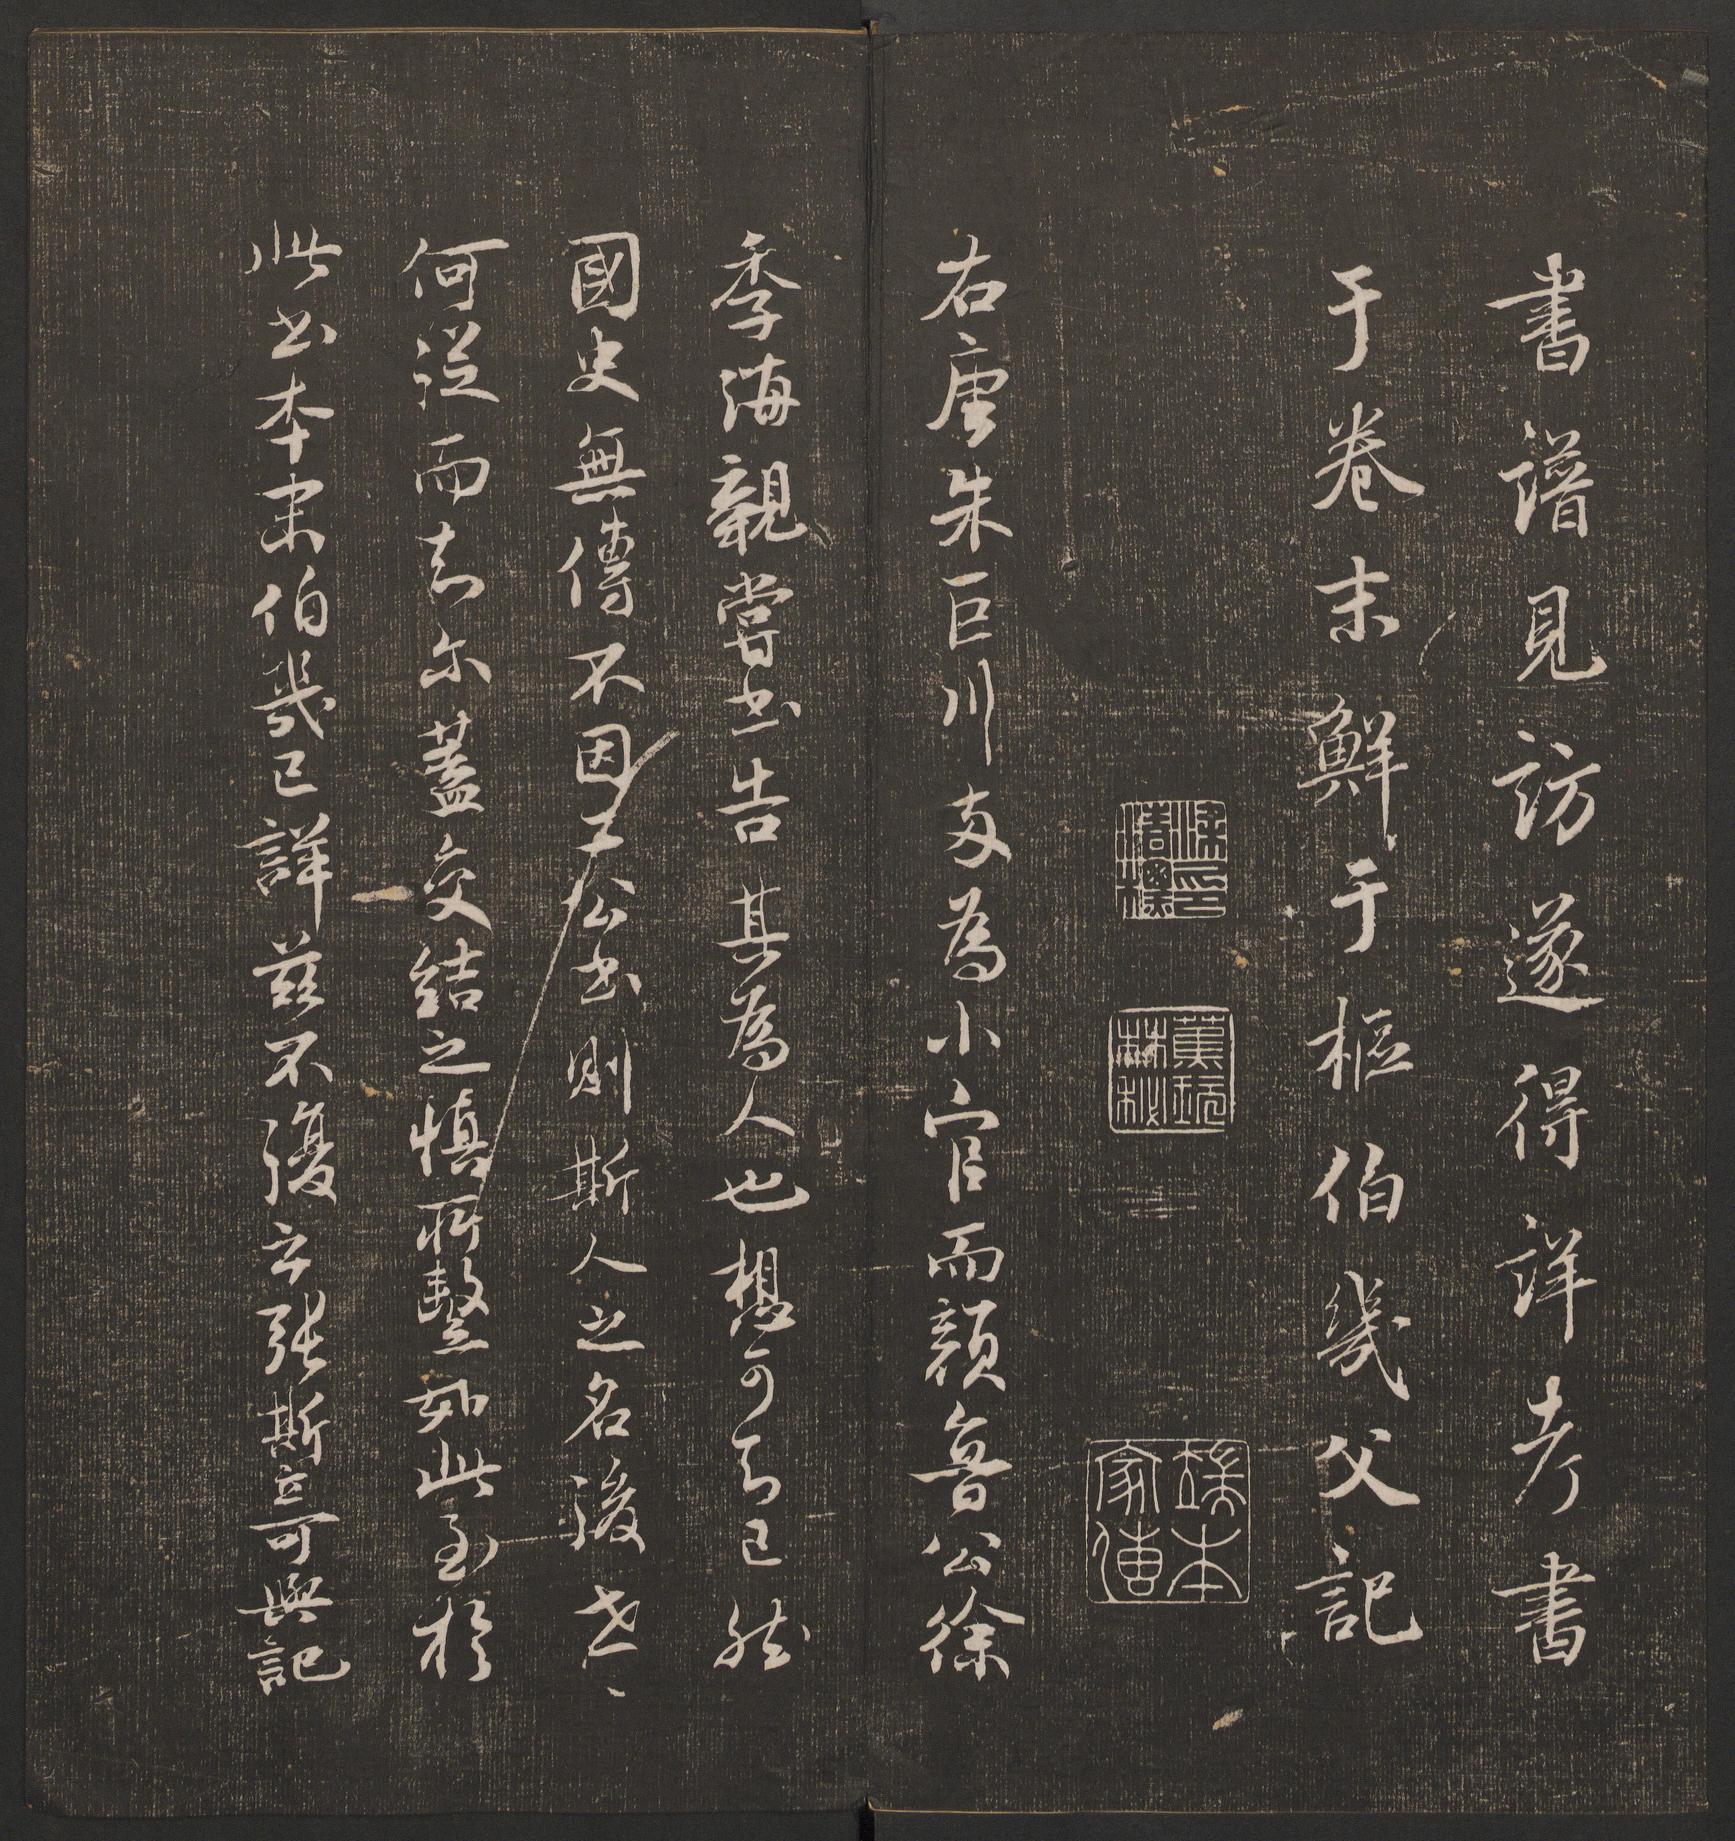 書譜見訪遂得詳考書
于卷末鮮于樞伯幾父記
梁印清標
蕉林秘玩
端本家傳
右唐朱巨川為小官而顏魯公徐
季海親嘗書告其為人也想可知已然
國史無傳不因二公書則斯人之名後世
何從而知尔蓋交結之慎所繫如此至於
此書本末伯幾已詳茲不復云張斯立可與記